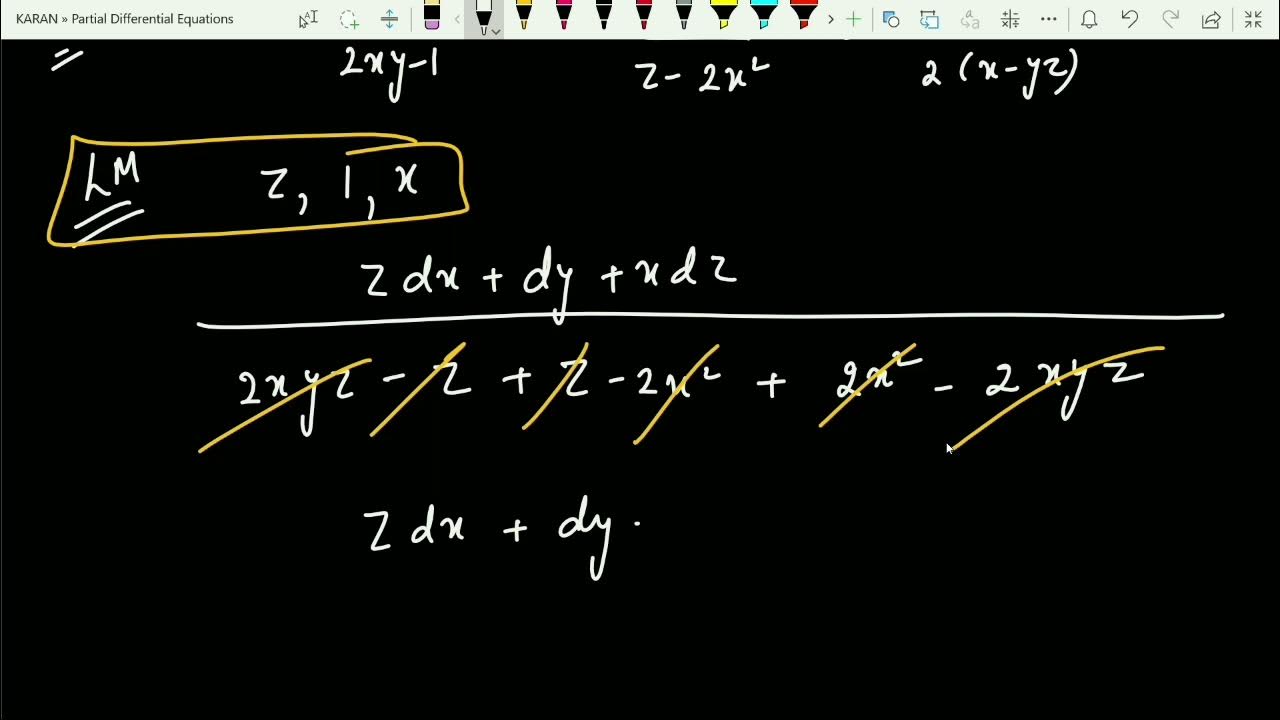 KARAN » Partial Differential Equations
2xy-1 z - 2x² 2 (x-yz)
LM z, 1, x
z dx + dy + x dz
2xyz - z + z - 2x² + 2x² - 2xyz
z dx + dy